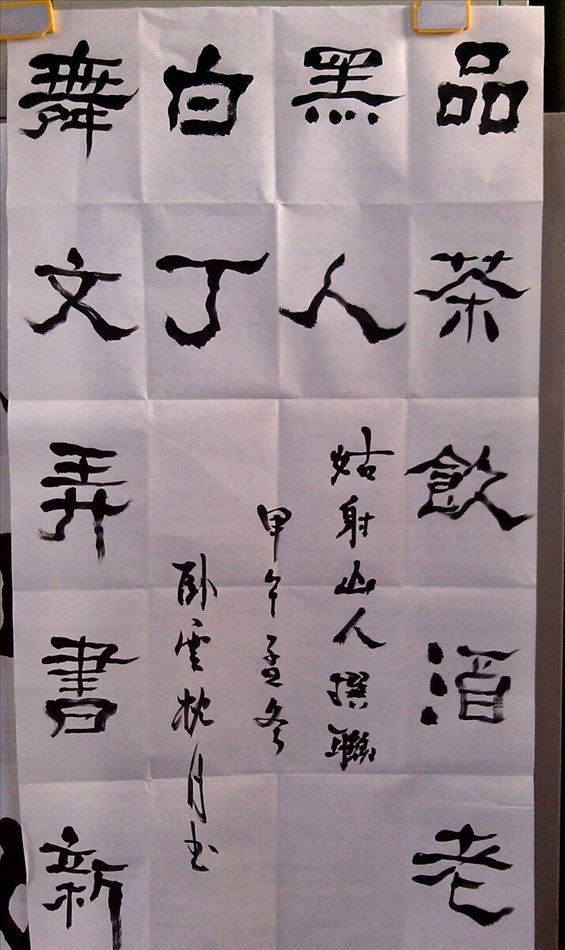 品茶飲酒老
黑人
舞文弄書新
白丁
姑射山人撰聯
甲午孟冬
卧雲枕月书